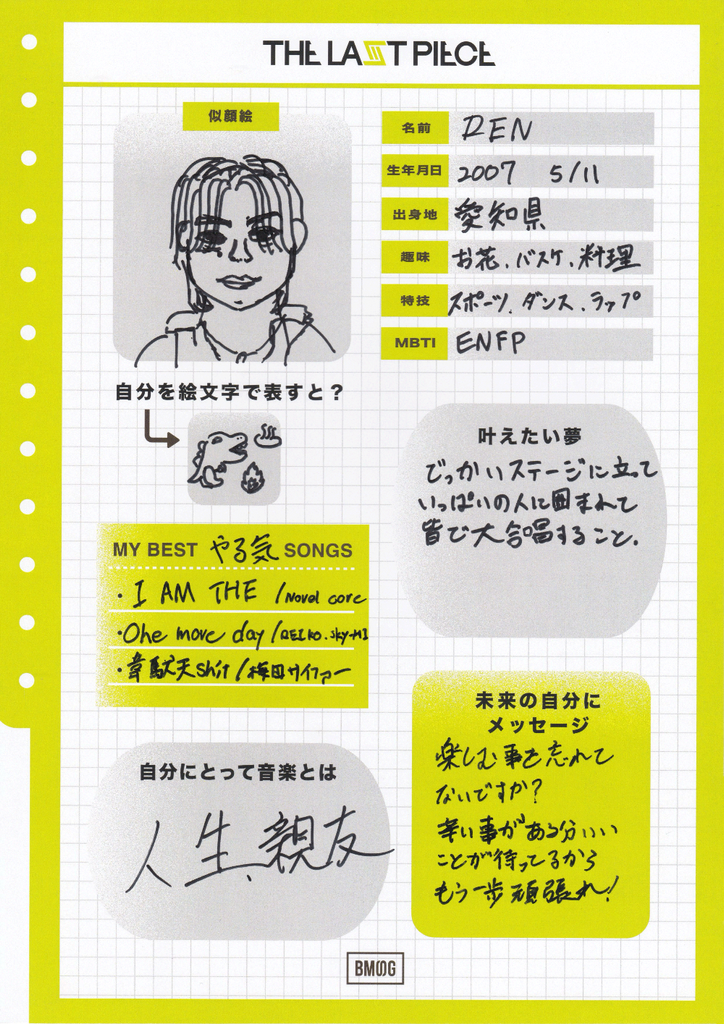 THE LAST PIECE
似顔絵
名前 REN
生年月日 2007 5/11
出身地 愛知県
趣味 お花、バスケ、料理
特技 スポーツ、ダンス、ラップ
MBTI ENFP
自分を絵文字で表すと？
叶えたい夢
でっかいステージに立って
いっぱいの人に囲まれて
皆で大合唱すること。
MY BEST やる気 SONGS
・I AM THE /Novel core
・One more day /REIKO.SKY-HI
・韋駄天shit/梅田サイファー
未来の自分に
メッセージ
楽しむ事を忘れて
ないですか？
辛い事がある分いい
ことが待ってるから
もう一歩頑張れ！
自分にとって音楽とは
人生、親友
BMSG